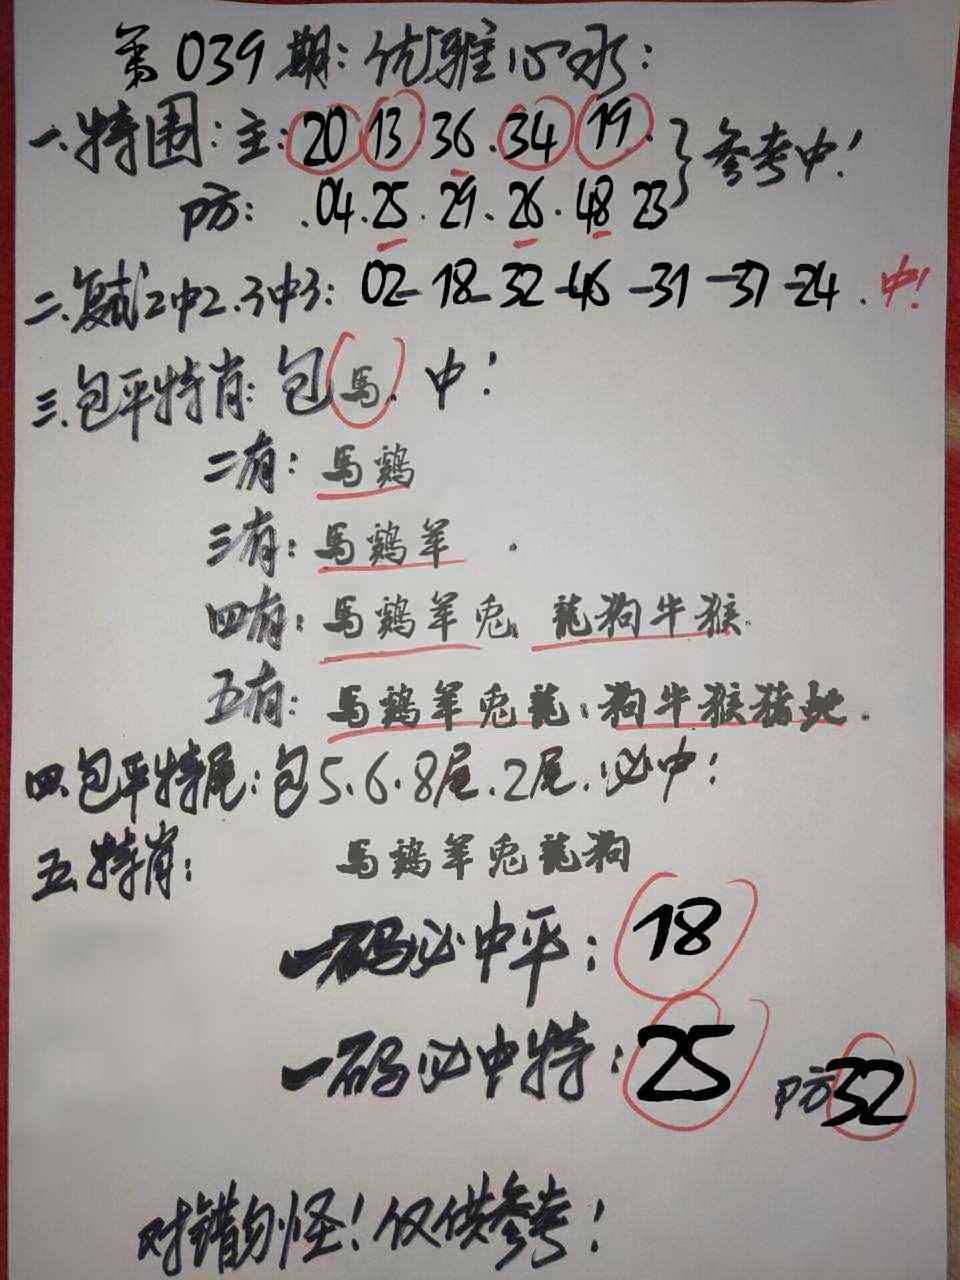 第039期:优雅心水:
一.特围:主:20.13.36.34.19.}参考中!
防:.04.25.29.26.48 23
二.复式2中2.3中3:02-18-32-46-31-37-24.中!
三.包平特肖:包馬.中!
二有:馬鷄
三有:馬鷄羊.
四有:馬鷄羊兎.龍狗牛猴.
五有:馬鷄羊兎龍:狗牛猴猪蛇.
四.包平特尾:包5.6.8尾.2尾.必中!
五.特肖:馬鷄羊兎龍狗
一码必中平:18
一码必中特:25 防32
对错勿怪!仅供参考!